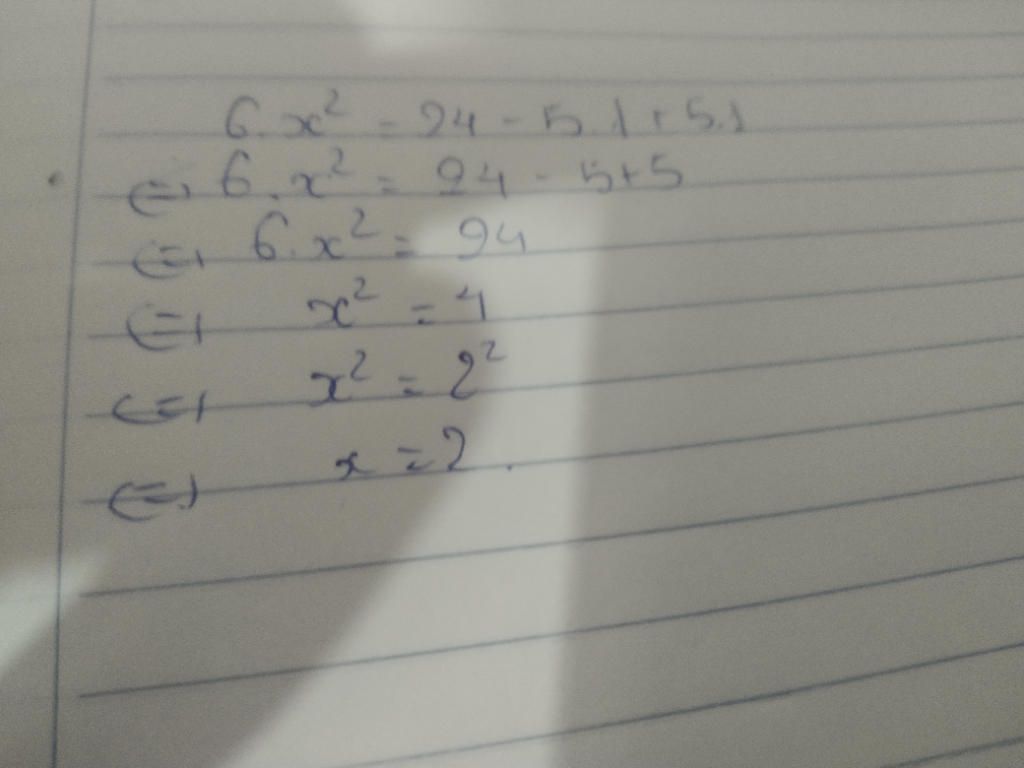 6.x² = 24 - 5.1 + 5.1
<=> 6.x² = 24 - 5+5
<=> 6.x² = 24
<=> x² = 4
<=> x² = 2²
<=> x = 2.